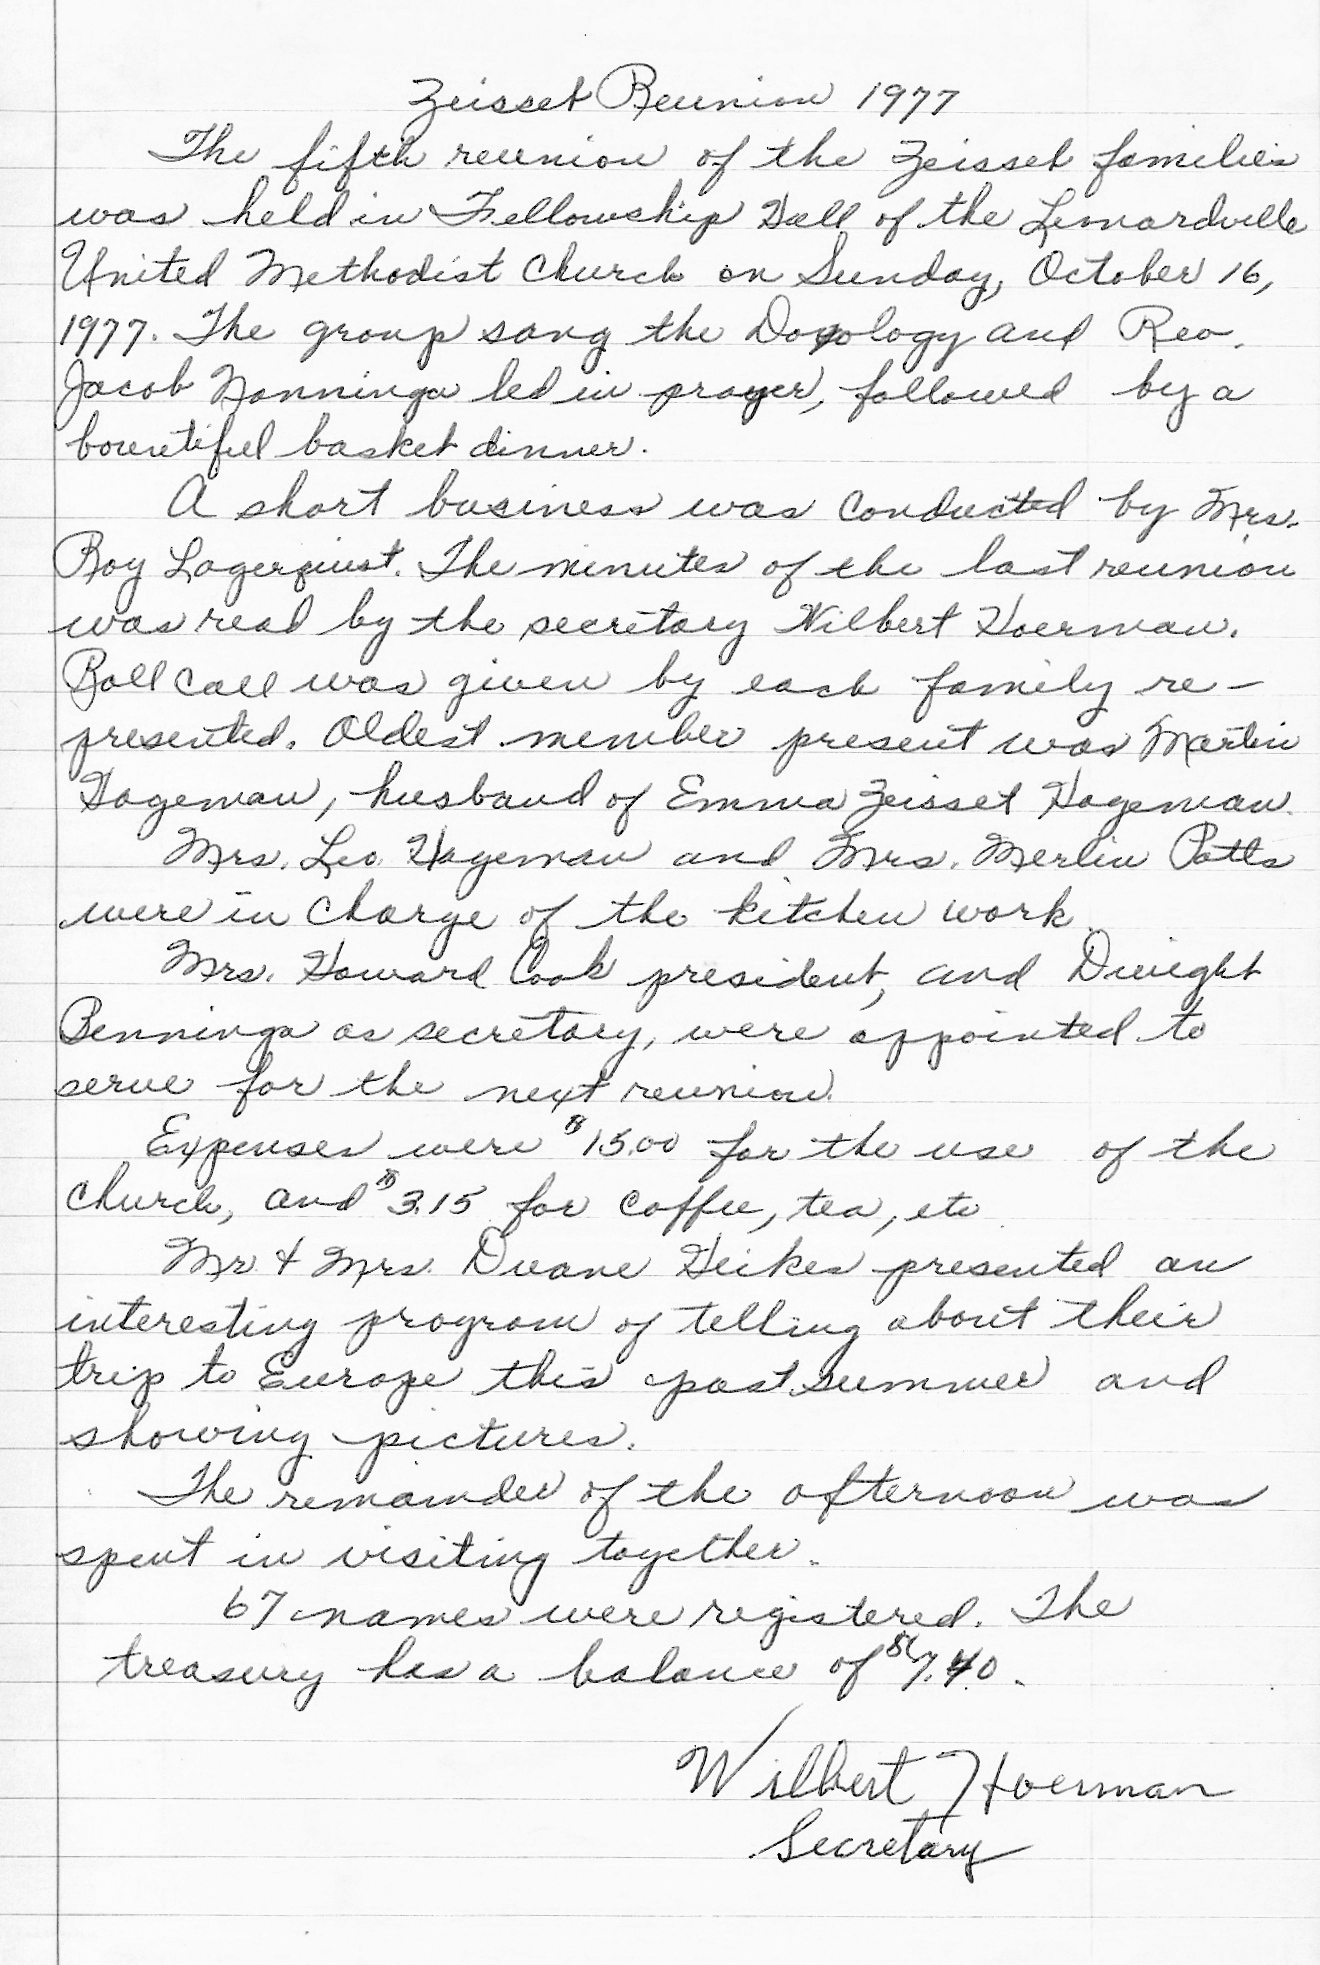 Zeisset Reunion 1977
The fifth reunion of the Zeisset families
was held in Fellowship Hall of the Leonardville
United Methodist Church on Sunday, October 16,
1977. The group sang the Doxology and Rev.
Jacob Nanninga led in prayer, followed by a
bountiful basket dinner.
A short business was conducted by Mrs.
Roy Lagerquist. The minutes of the last reunion
was read by the secretary Wilbert Hoerman.
Roll call was given by each family re-
presented. Oldest member present was Martin
Hageman, husband of Emma Zeisset Hageman.
Mrs. Leo Hageman and Mrs. Merlin Potts
were in charge of the kitchen work.
Mrs. Howard Cook president, and Dwight
Benninga as secretary, were appointed to
serve for the next reunion.
Expenses were $15.00 for the use of the
church, and $3.15 for coffee, tea, etc
Mr. & Mrs. Duane Heikes presented an
interesting program of telling about their
trip to Europe this past summer and
showing pictures.
The remainder of the afternoon was
spent in visiting together.
67 names were registered. The
treasury has a balance of
Wilbert Hoerman
Secretary